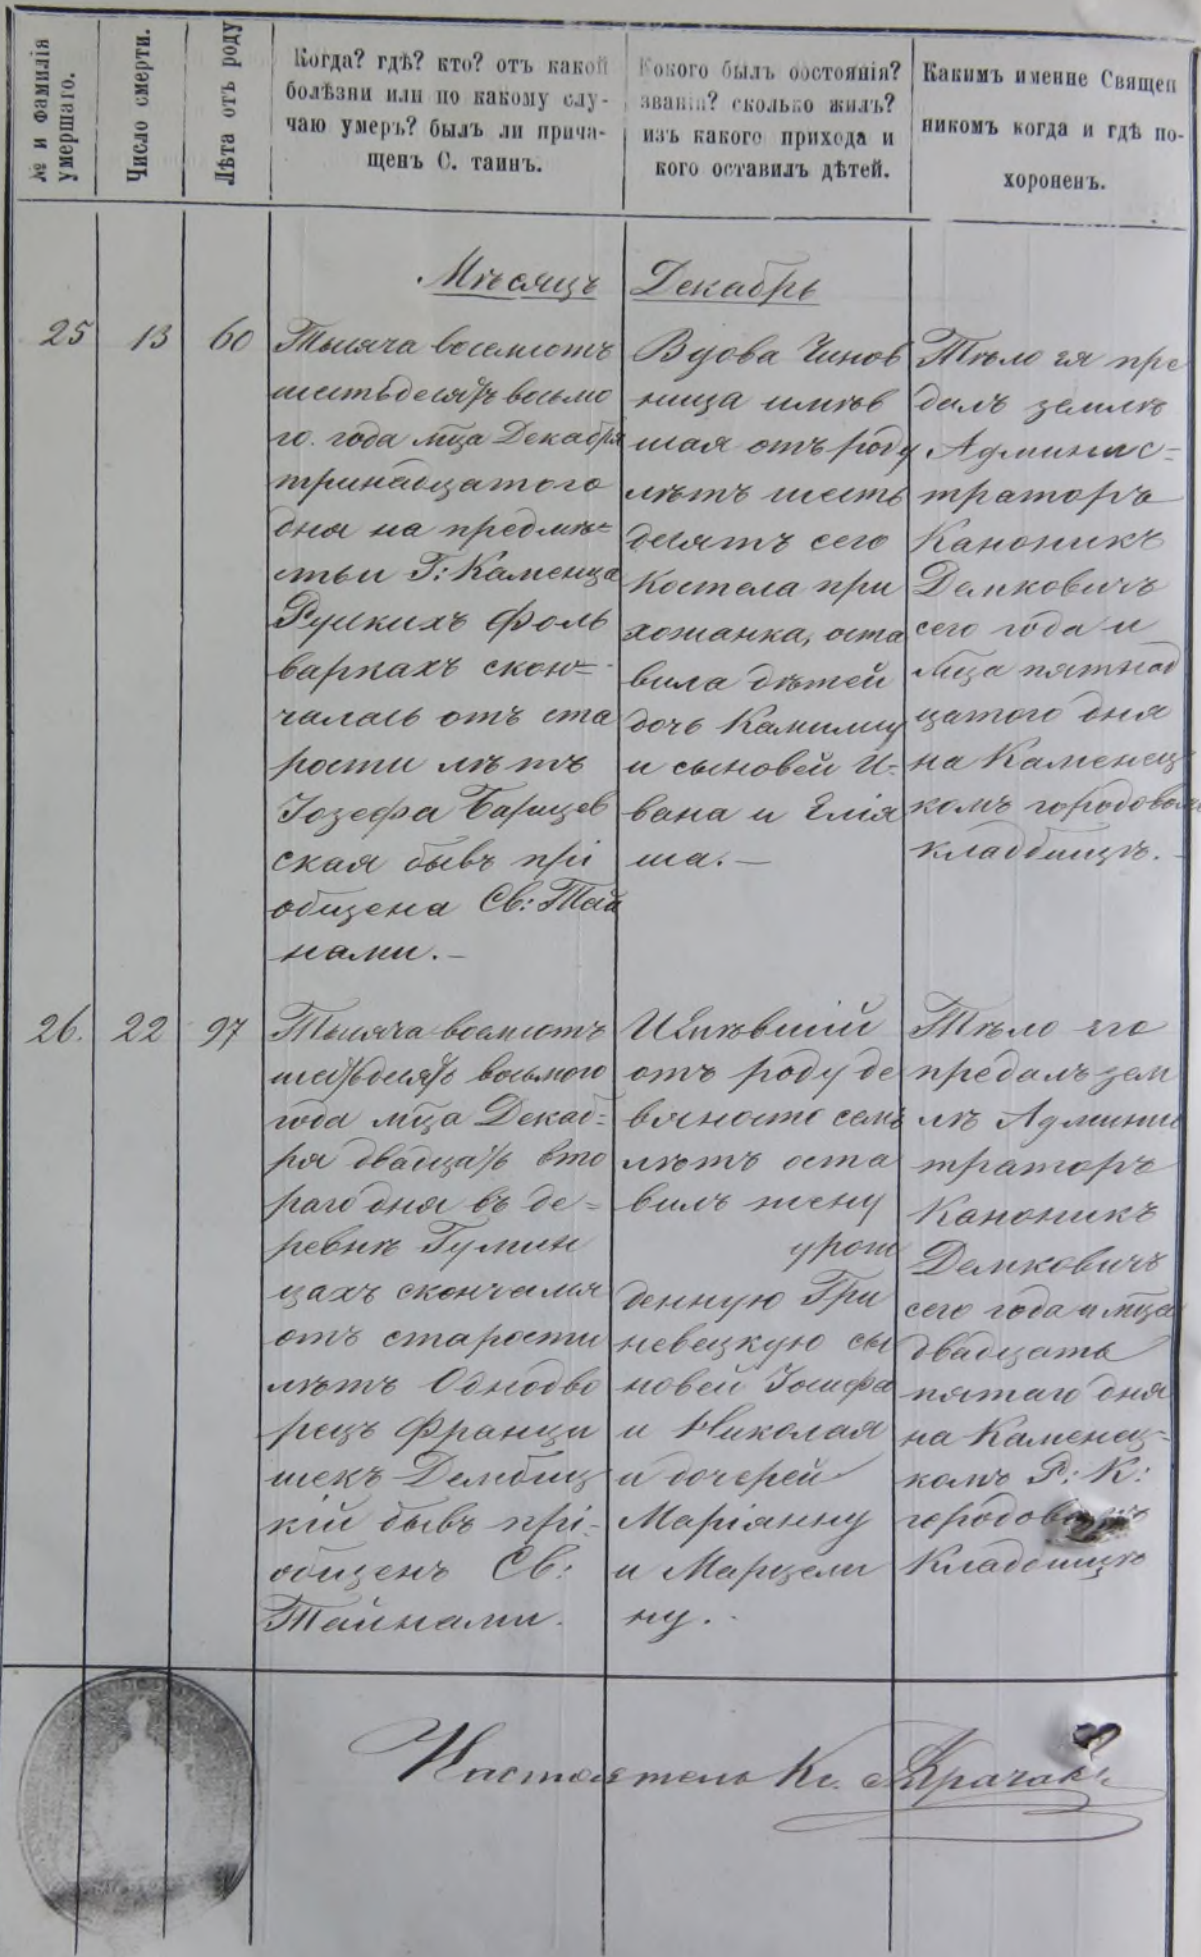 № и фамилія
умершаго.
Число смерти.
Лѣта отъ роду
Когда? гдѣ? кто? отъ какой
болѣзни или по какому слу-
чаю умеръ? былъ ли прича-
щенъ С. таинъ.
Кокого былъ состоянія?
званія? сколько жилъ?
изъ какого прихода и
кого оставилъ дѣтей.
Какимъ именне Священ
никомъ когда и гдѣ по-
хороненъ.
Мѣсяцъ Декабрь
25 13 60
Тысяча восемсотъ
шестьдесятъ восьмо
го. года мца Декабря
тринадцатого
дня на предмѣ=
стьи Г: Каменца
Рускихъ фоль
варкахъ скон=
чалась отъ ста
рости лѣтъ
Іозефа Барщев
ская бывъ прі
общена Св: Тай
нами.-
Вдова Чинов
ница имѣв
шая отъ роду
лѣтъ шесть
десятъ сего
Костела при
хожанка, оста
вила дѣтей
дочь Камилиу
и сыновей И-
вана и Елія
ша.-
Тѣло ея пре
далъ землѣ
Админис=
траторъ
Каноникъ
Демковичъ
сего года и
мца пятнад
цатого дня
на Каменец
комъ городовомъ
кладбищѣ.-
26. 22 97
Тысяча восмсотъ
шестьдесятъ восьмого
года мца Декаб=
ря двадцать вто
раго дня въ де=
ревнѣ Гумин
цахъ скончался
отъ старости
лѣтъ Однодво
рецъ Францы
шекъ Дембиц
кій бывъ прі-
общенъ Св:
Тайнами.
Имѣвшій
отъ роду де
вяносто семь
лѣтъ оста
вилъ жену
урож
денную Гри
невецкую сы
новей Іосифа
и Николая
и дочерей
Маріянну
и Марцели
ну.-
Тѣло его
предалъ зем
лѣ Админис
траторъ
Каноникъ
Демковичъ
сего года и мца
двадцать
пятаго дня
на Каменец-
комъ Р: К:
городовомъ
Кладбищѣ
Настоятель Кс.